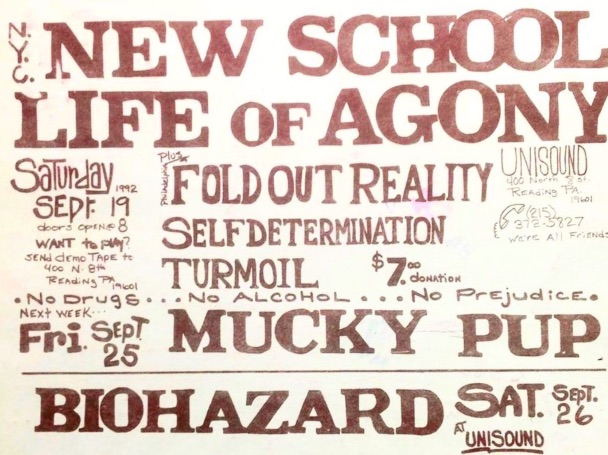 N.Y.C. NEW SCHOOL
LIFE OF AGONY
Saturday 1992
SEPT. 19
doors open @ 8
WANT to play?
SEND demo TAPE to
400 N. 8th
READING PA
19601
plus
Philadelphia
FOLD OUT REALITY
SELF DETERMINATION
TURMOIL
$7.00 donation
UNISOUND
400 North 8 St.
READING PA.
19601
(215)
372-5827
we're All Friends
• No Drugs . . . No ALCOHOL . . . . No Prejudice.
NEXT WEEK...
Fri. SEPT 25
MUCKY PUP
BIOHAZARD SAT. SEPT. 26
AT UNISOUND